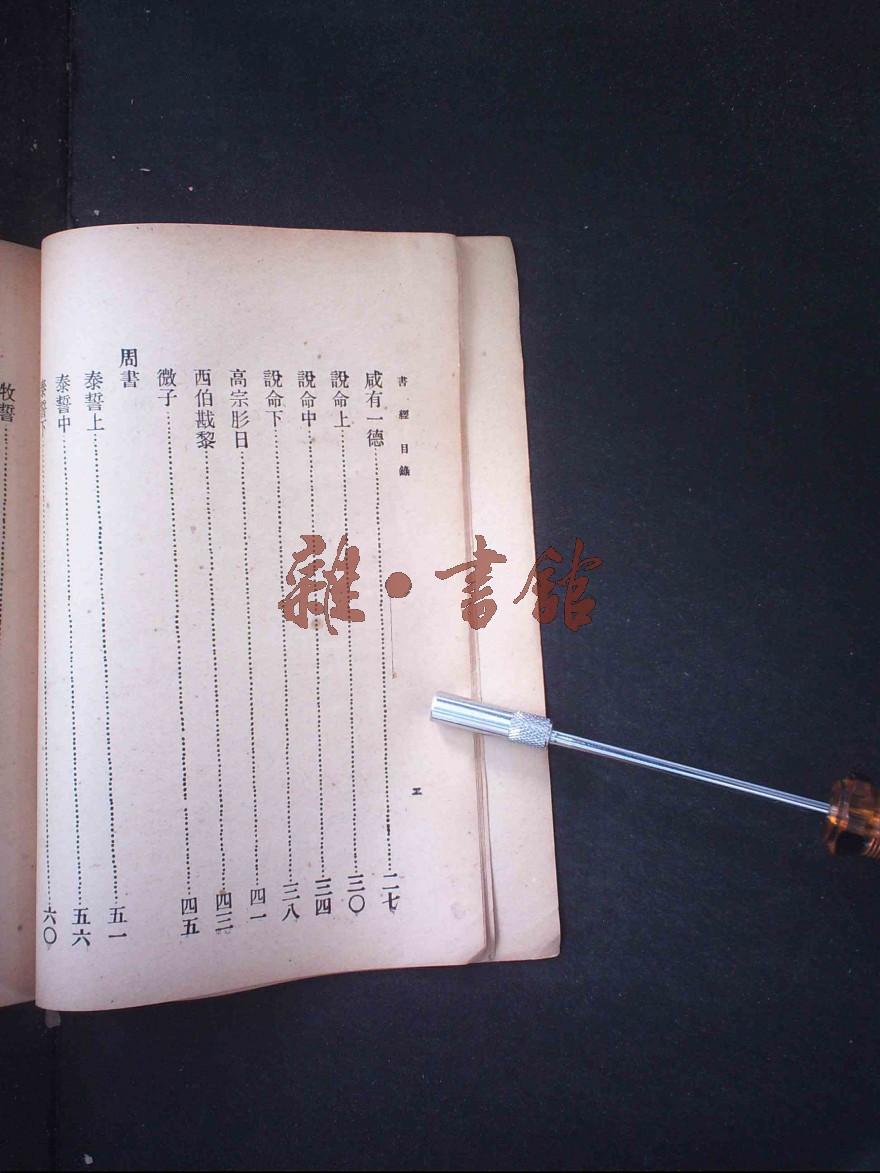 書經目錄
咸有一德……二七
說命上……三〇
說命中……三四
說命下……三八
高宗肜日……四一
西伯戡黎……四三
微子……四五
周書
泰誓上……五一
泰誓中……五六
泰誓下……六〇
牧誓……
雜·書館